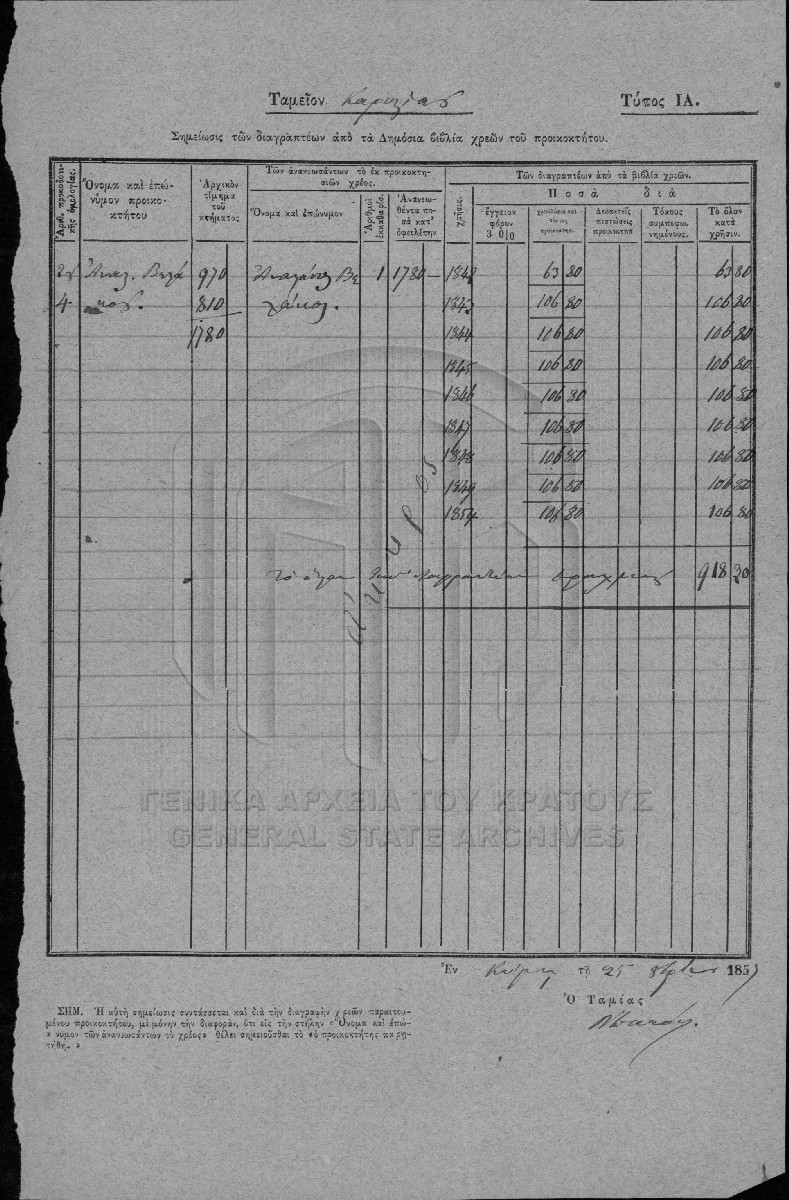 Ταμεῖον Καρυστίας Τύπος ΙΑ.
Σημείωσις τῶν διαγραπτέων ἀπὸ τὰ Δημόσια βιβλία χρεῶν τοῦ προικοκτήτου.
Ἀριθ. προικοδοτικῆς ὁμολογίας.
Ὄνομα καὶ ἐπώνυμον προικοκτήτου
Ἀρχικὸν τίμημα τοῦ κτήματος
Τῶν ἀνανεωσάντων τὸ ἐκ προικοκτησιῶν χρέος.
Ὄνομα καὶ ἐπώνυμον
Ἀριθμοὶ ἐκκαθαρίσ.
Ἀνανεωθέντα ποσὰ κατ' ὀφειλέτην
Τῶν διαγραπτέων ἀπὸ τὰ βιβλία χρεῶν.
χρῆσις.
Ποσὰ διὰ
ἔγγειον φόρον 3 0|0
Δεκαετεῖς πιστώσεις προικοκτησ
Τόκους συμπεφωνημένους.
Τὸ ὅλον κατὰ χρῆσιν.
970 1 1780 — 1842 63 80 63 80
4 810 1843 106 80 106 80
1780 1844 106 80 106 80
1845 106 80 106 80
1846 106 80 106 80
1847 106 80 106 80
1848 106 80 106 80
1849 106 80 106 80
1854 106 80 106 80
ἄκυρος
τὸ ὅλον δραχμαὶ 918 20
ΓΕΝΙΚΑ ΑΡΧΕΙΑ ΤΟΥ ΚΡΑΤΟΥΣ
GENERAL STATE ARCHIVES
Ἐν Κύμῃ τῇ 25 185
Ὁ Ταμίας
ΣΗΜ. Ἡ αὐτὴ σημείωσις συντάσσεται καὶ διὰ τὴν διαγραφὴν χρεῶν παραιτου-
μένου προικοκτήτου, μὲ μόνην τὴν διαφορὰν, ὅτι εἰς τὴν στήλην «Ὄνομα καὶ ἐπώ-
» νυμον τῶν ἀνανεωσάντων τὸ χρέος» θέλει σημειοῦσθαι τὸ «ὁ προικοκτήτης παρῃ-
τήθη. »